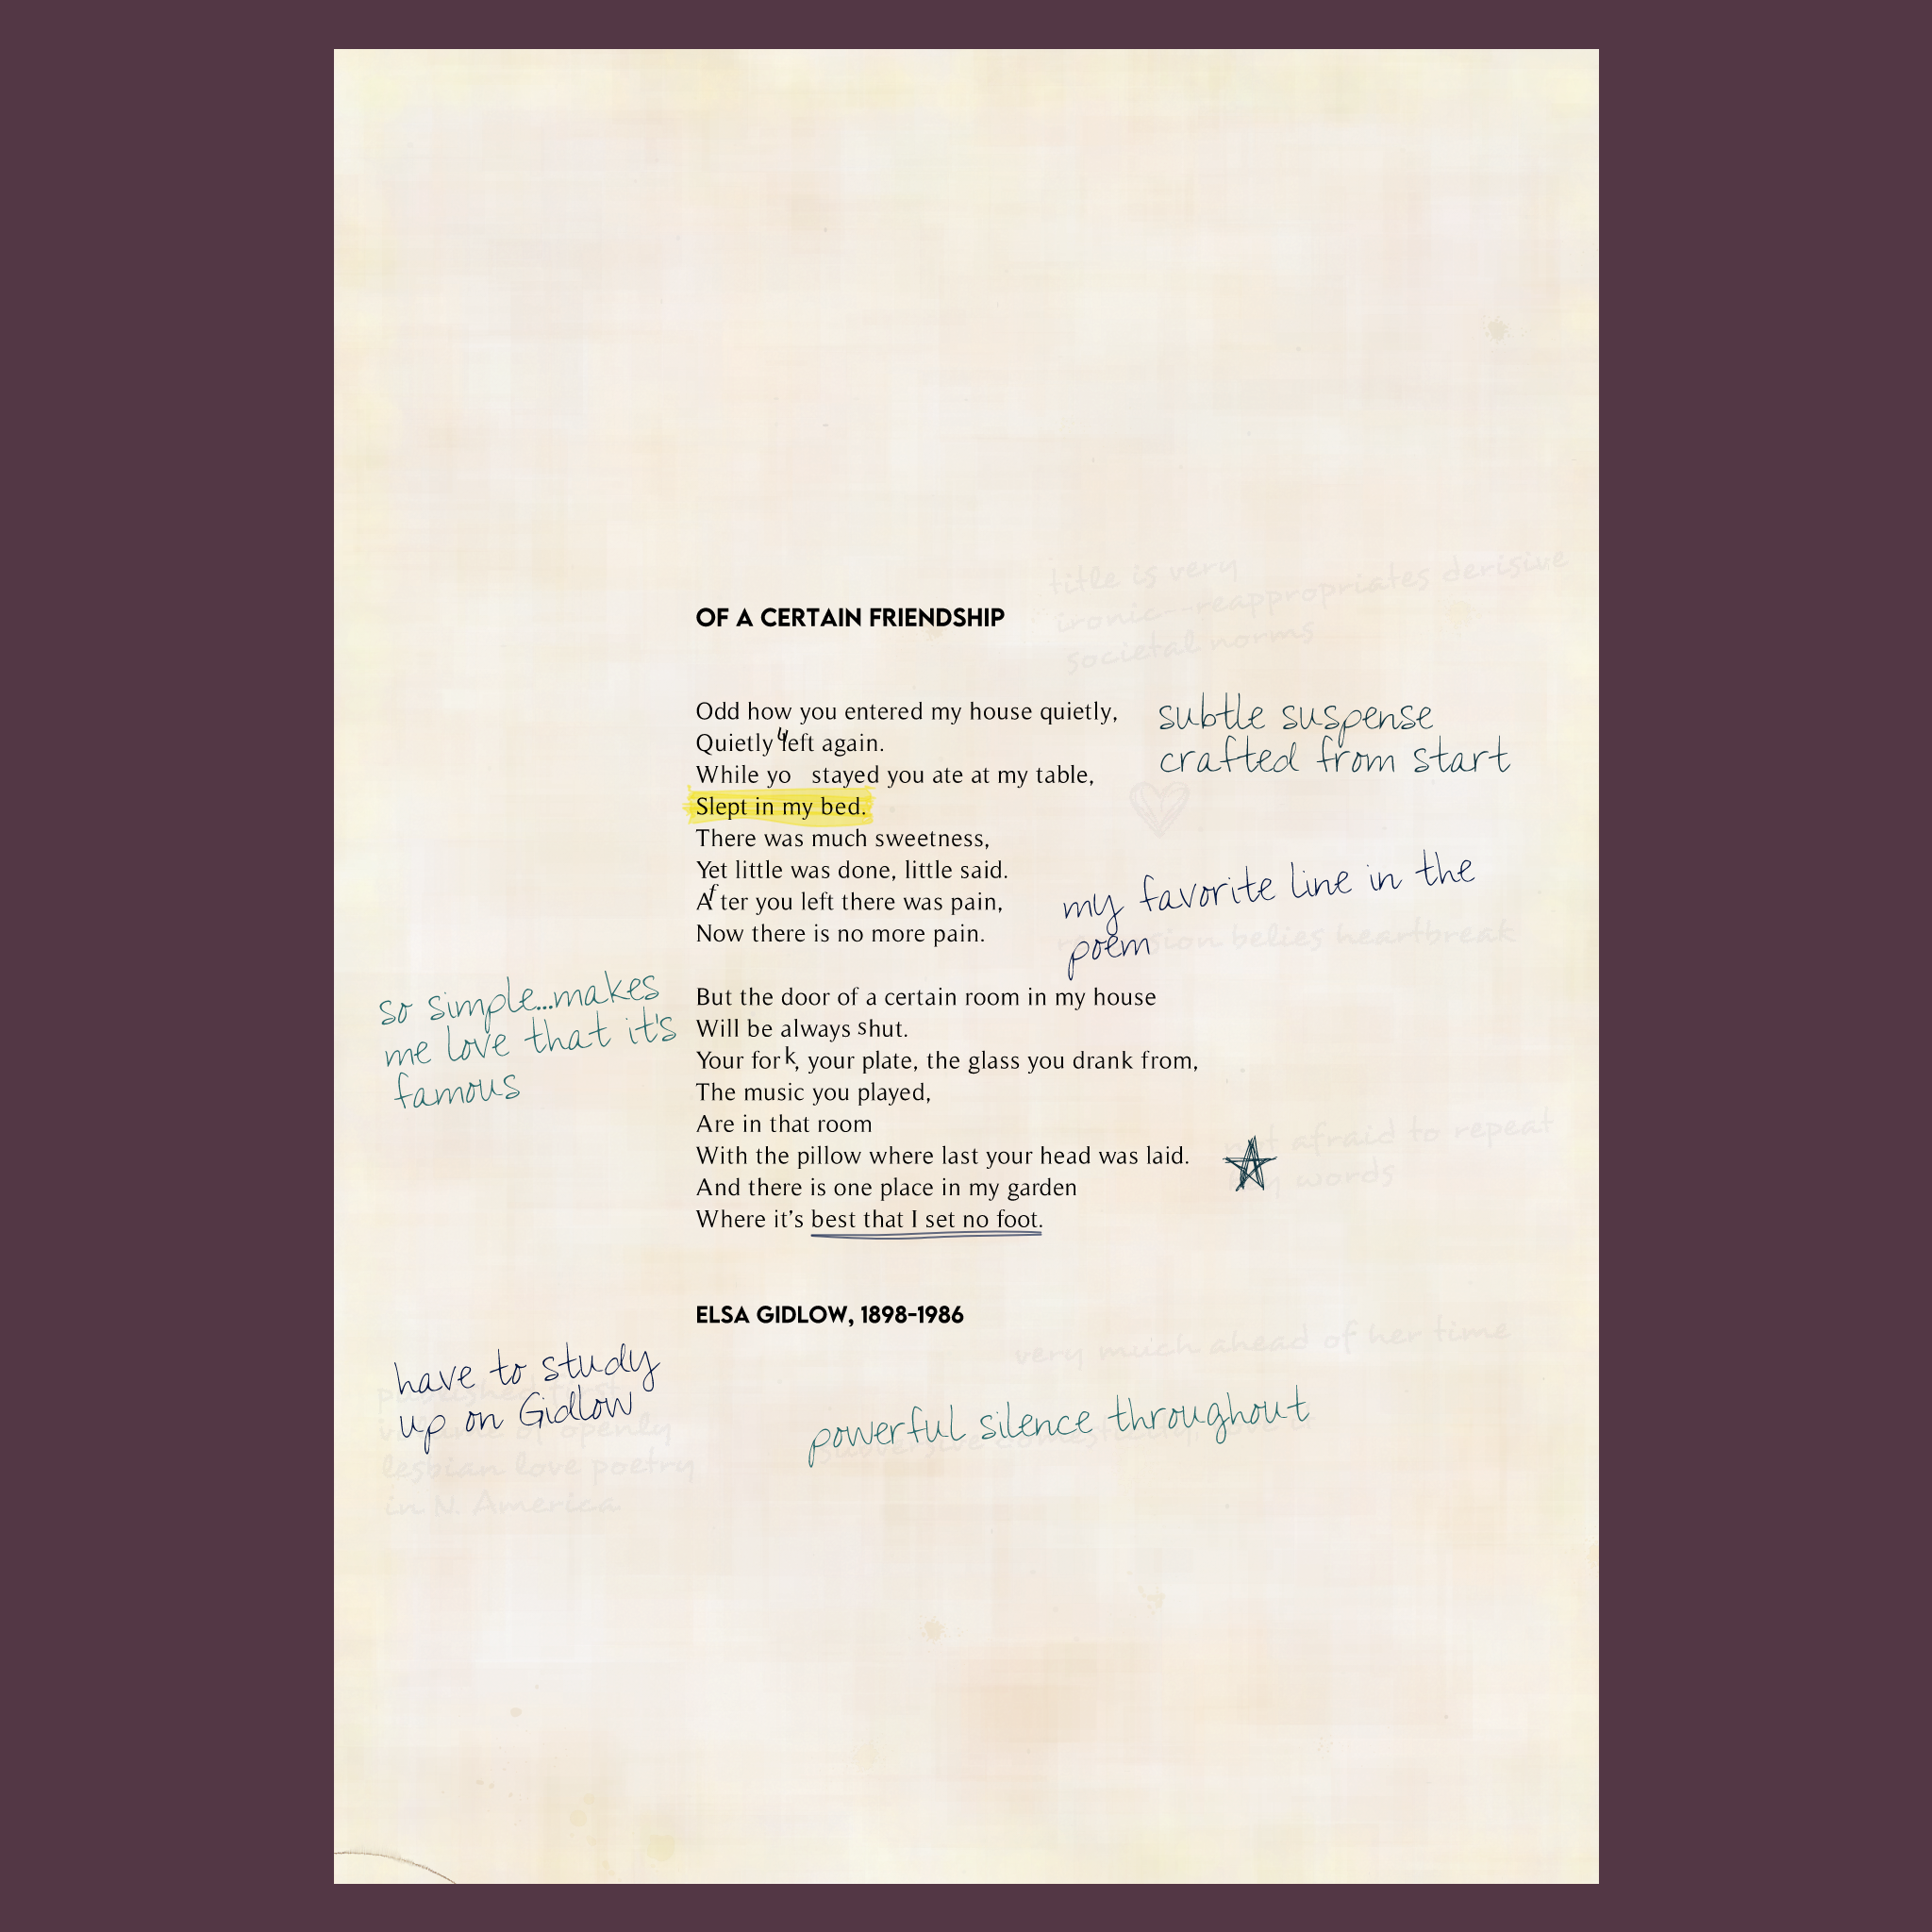 title is very
ironic--reappropriates derisive
societal norms
OF A CERTAIN FRIENDSHIP
Odd how you entered my house quietly,
Quietly left again.
While you stayed you ate at my table,
Slept in my bed.
There was much sweetness,
Yet little was done, little said.
After you left there was pain,
Now there is no more pain.
subtle suspense
crafted from start
my favorite line in the
poem
belies heartbreak
so simple...makes
me love that it's
famous
But the door of a certain room in my house
Will be always shut.
Your fork, your plate, the glass you drank from,
The music you played,
Are in that room
With the pillow where last your head was laid.
And there is one place in my garden
Where it’s best that I set no foot.
not afraid to repeat
words
ELSA GIDLOW, 1898-1986
very much ahead of her time
have to study
up on Gidlow
published first
volume of openly
lesbian love poetry
in N. America.
powerful silence throughout